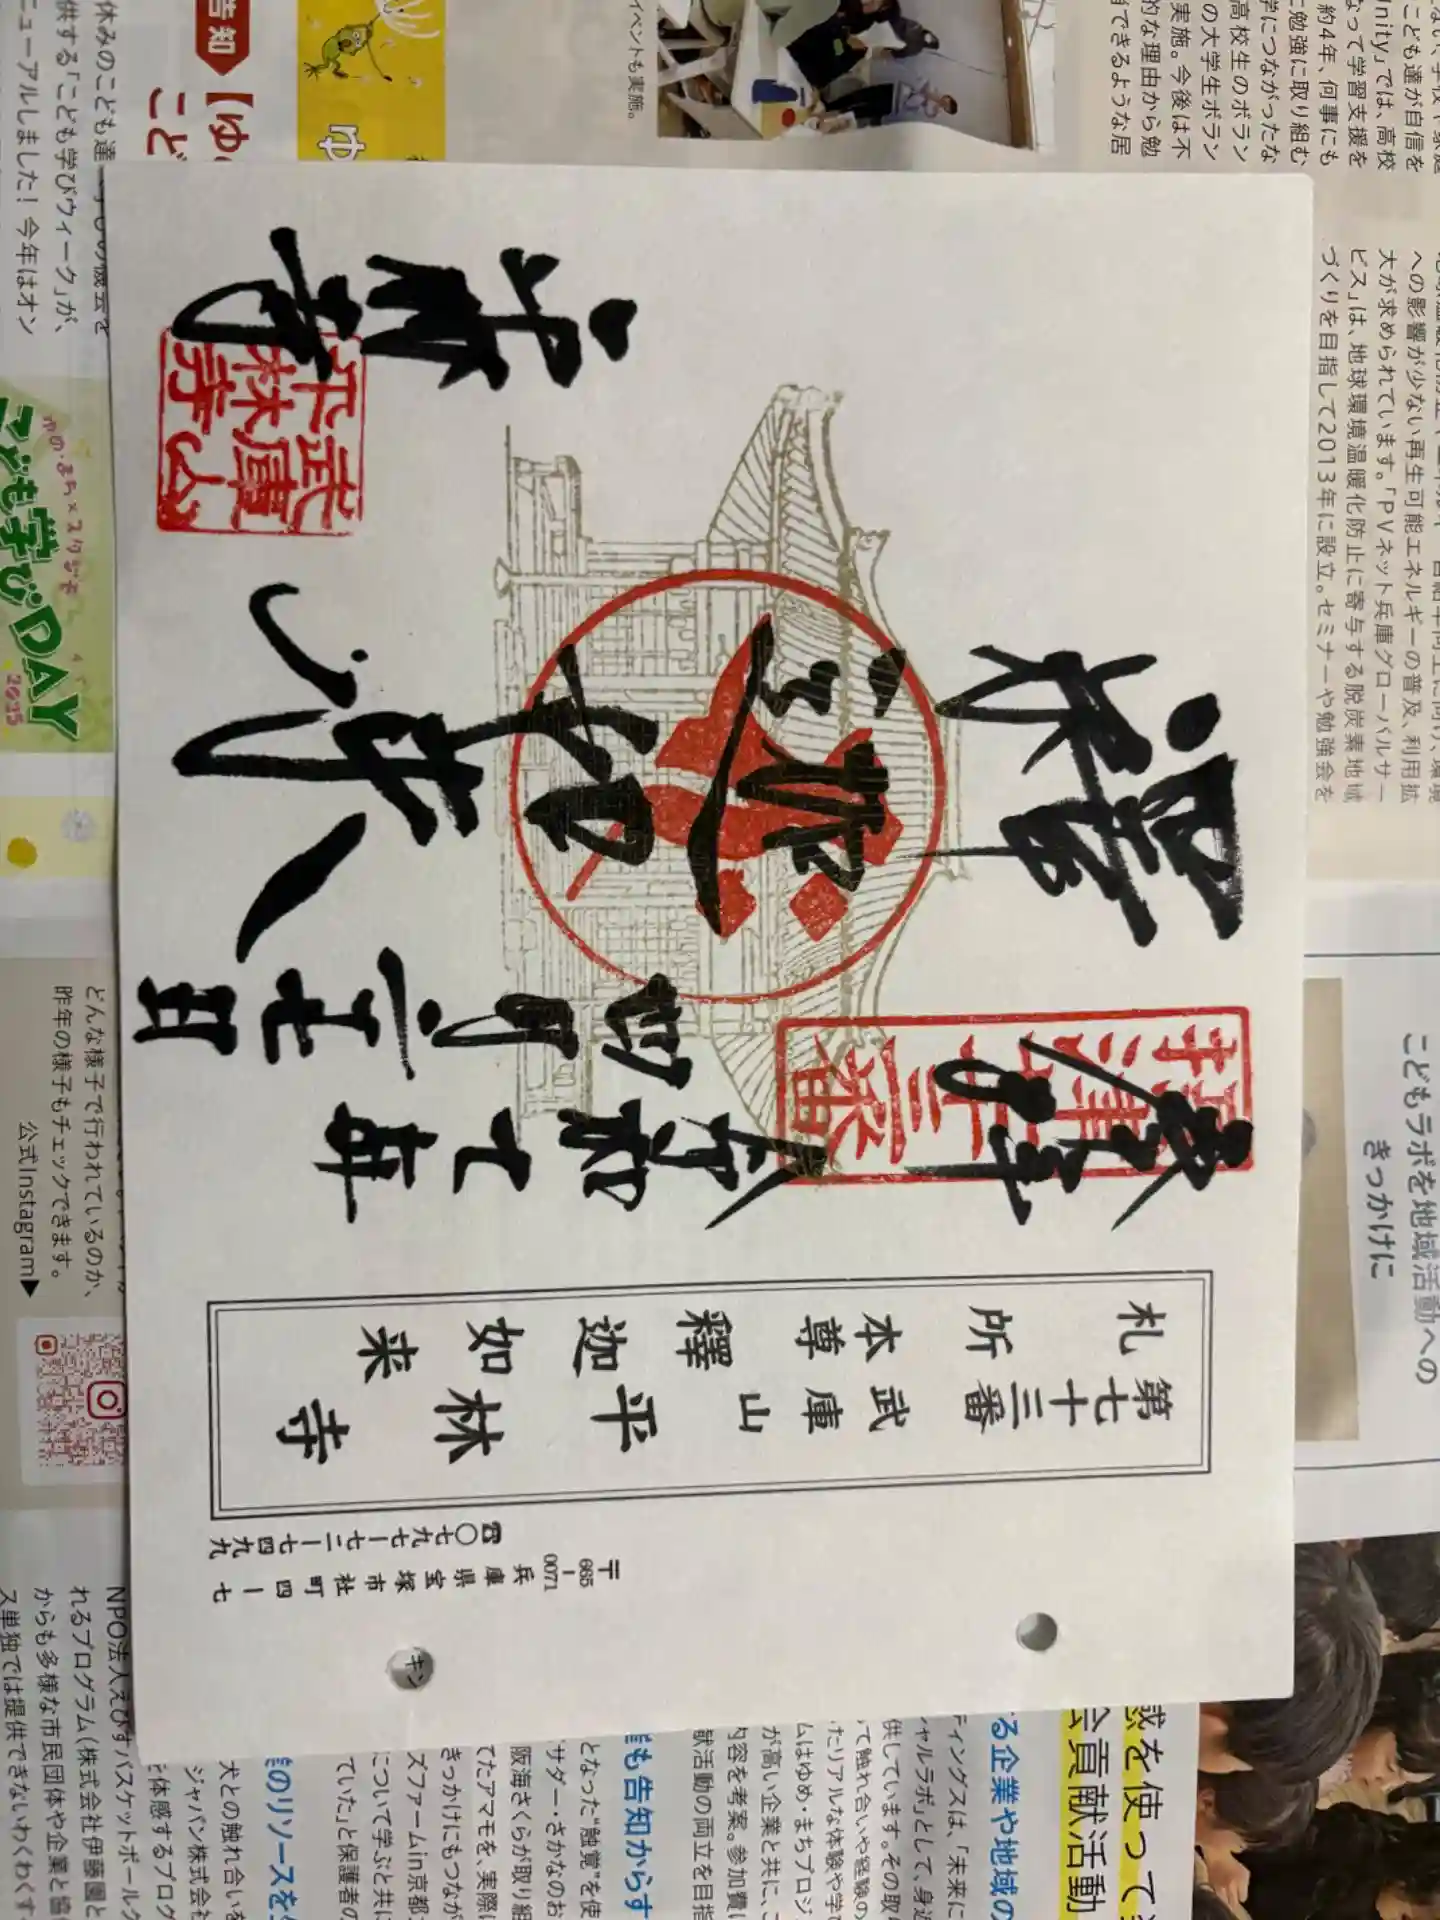 奉拝
摂津
七十三番
令和七年
四月二七日
釋迦
如来
平林寺
武庫山
平林寺
札所
第七十三番
本尊
武庫山
釋迦如来
平林寺
〒665-0071
兵庫県宝塚市社町四ー七
☎〇七九七ー七二ー七四九九
キン
休みのこども達
供する「こども学びウィーク」が、
ニューアルしました!今年はオン
告知
イベントも実施。
こども達が自信を
Unity」では、高校
なって学習支援を
約4年、何事にも
に勉強に取り組む
学につながったな
高校生のボラン
の大学生ボラン
実施。今後は不
的な理由から勉
できるような居
への影響が少ない再生可能エネルギーの普及、利用拡
大が求められています。「PVネット兵庫グローバルサー
ビス」は、地球環境温暖化防止に寄与する脱炭素地域
づくりを目指して2013年に設立。セミナーや勉強会を
ゆめ・まち×スタジオ
こども学びDAY
2025
どんな様子で行われているのか、
昨年の様子もチェックできます。
公式Instagram▶
こどもラボを地域活動への
きっかけに
感を使って
会貢献活動
る企業や地域の
ティングスは、「未来に
シャルラボ」として、身近
供しています。その取り
て触れ合いや経験の
たリアルな体験や学
ムはゆめ・まちプロジ
が高い企業と共に、こ
内容を考案。参加費
献活動の両立を目指
も告知からす
となった“触覚”を使
サダー・さかなのお
阪海さくらが取り組
てたアマモを、実際に
きっかけにもつなが
ズファームin京都
について学ぶと共に
ていた」と保護者の
のリソースを
犬との触れ合いを
ジャパン株式会社
体感するプログ
NPO法人えびすバスケットボールク
れるプログラム(株式会社伊藤園と
からも多様な市民団体や企業と協
ス単独では提供できないわくわくす